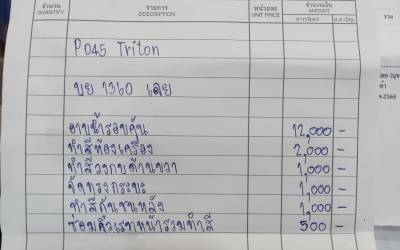 จำนวน QUANTITY รายการ DESCRIPTION หน่วยละ UNIT PRICE จำนวนเงิน AMOUNT
P045 Triton
บย 1360 เลย
อาบน้ำรอบคัน 12,000 -
ทำสีห้องเครื่อง 2,000 -
ทำสีวงกบด้านขวา 1,000 -
จัดทรงกระบะ 1,000 -
ทำสีกันชนหลัง 1,000 -
ซ่อมคิ้วเรทหน้ารวมทำสี 500 -
รวม